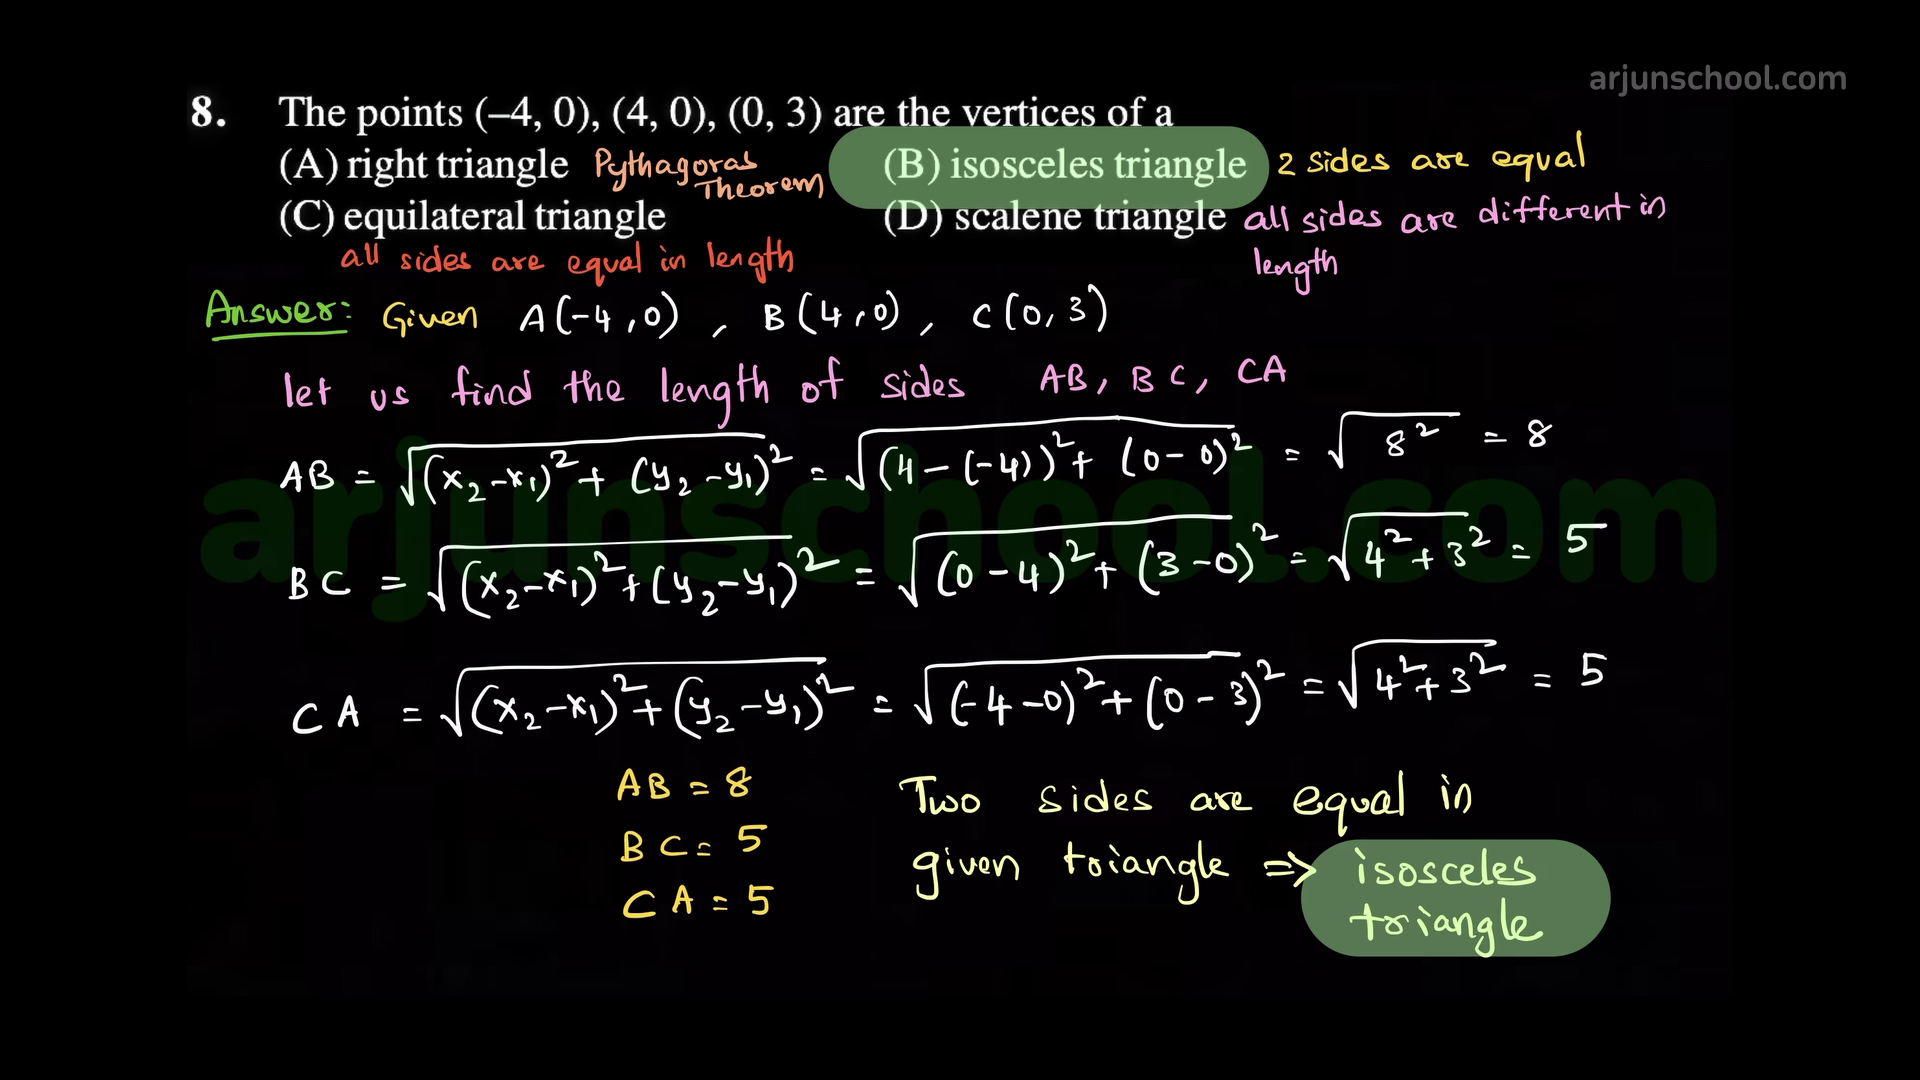 arjunschool.com
8. The points (–4, 0), (4, 0), (0, 3) are the vertices of a
(A) right triangle Pythagoras Theorem (B) isosceles triangle 2 sides are equal
(C) equilateral triangle (D) scalene triangle all sides are different in length
all sides are equal in length
Answer: Given A(-4,0) , B(4,0) , C(0,3)
let us find the length of sides AB, BC, CA
AB = √((x₂-x₁)²+ (y₂-y₁)²) = √((4-(-4))²+ (0-0)²) = √(8²) = 8
BC = √((x₂-x₁)²+(y₂-y₁)²) = √((0-4)²+ (3-0)²) = √(4²+3²) = 5
CA = √((x₂-x₁)²+(y₂-y₁)²) = √((-4-0)²+(0-3)²) = √(4²+3²) = 5
AB = 8
BC = 5
CA = 5
Two sides are equal in
given triangle ⇒ isosceles
triangle
arjunschool.com